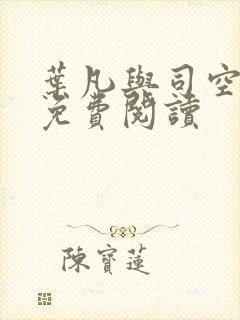 葉凡與司空
免費閱讀
陳寶蓮